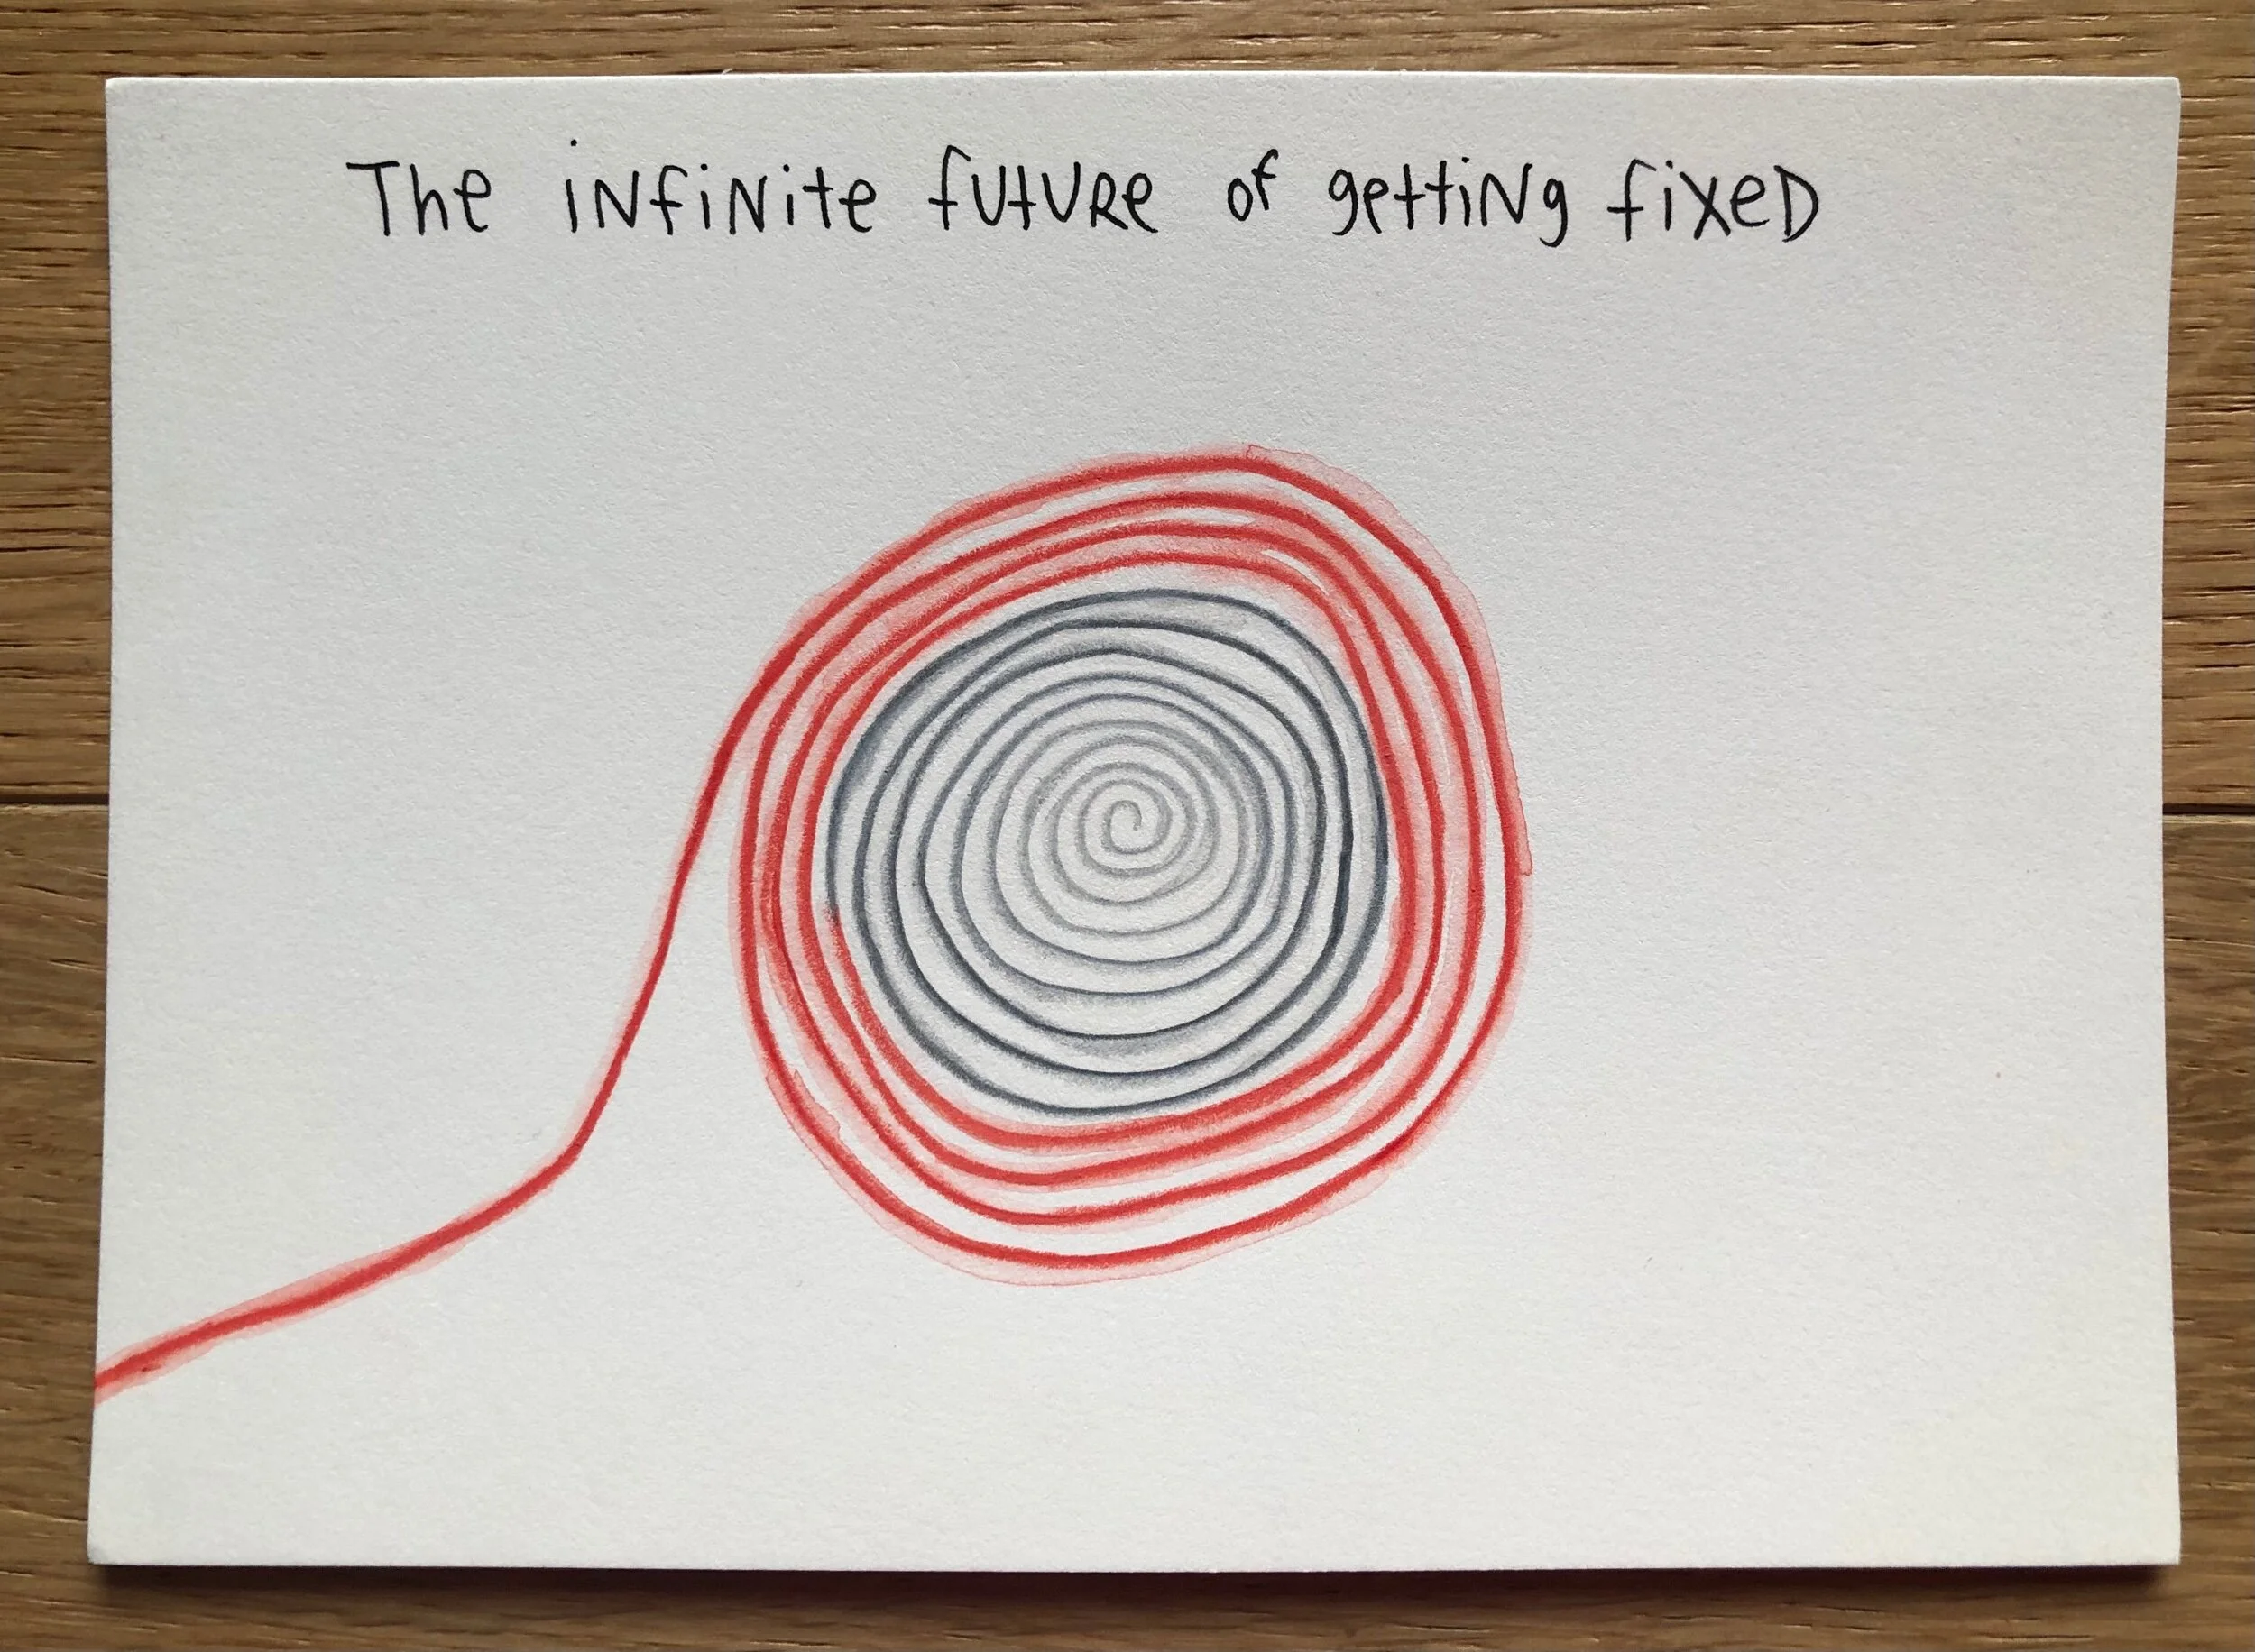 The infinite future of getting fixed